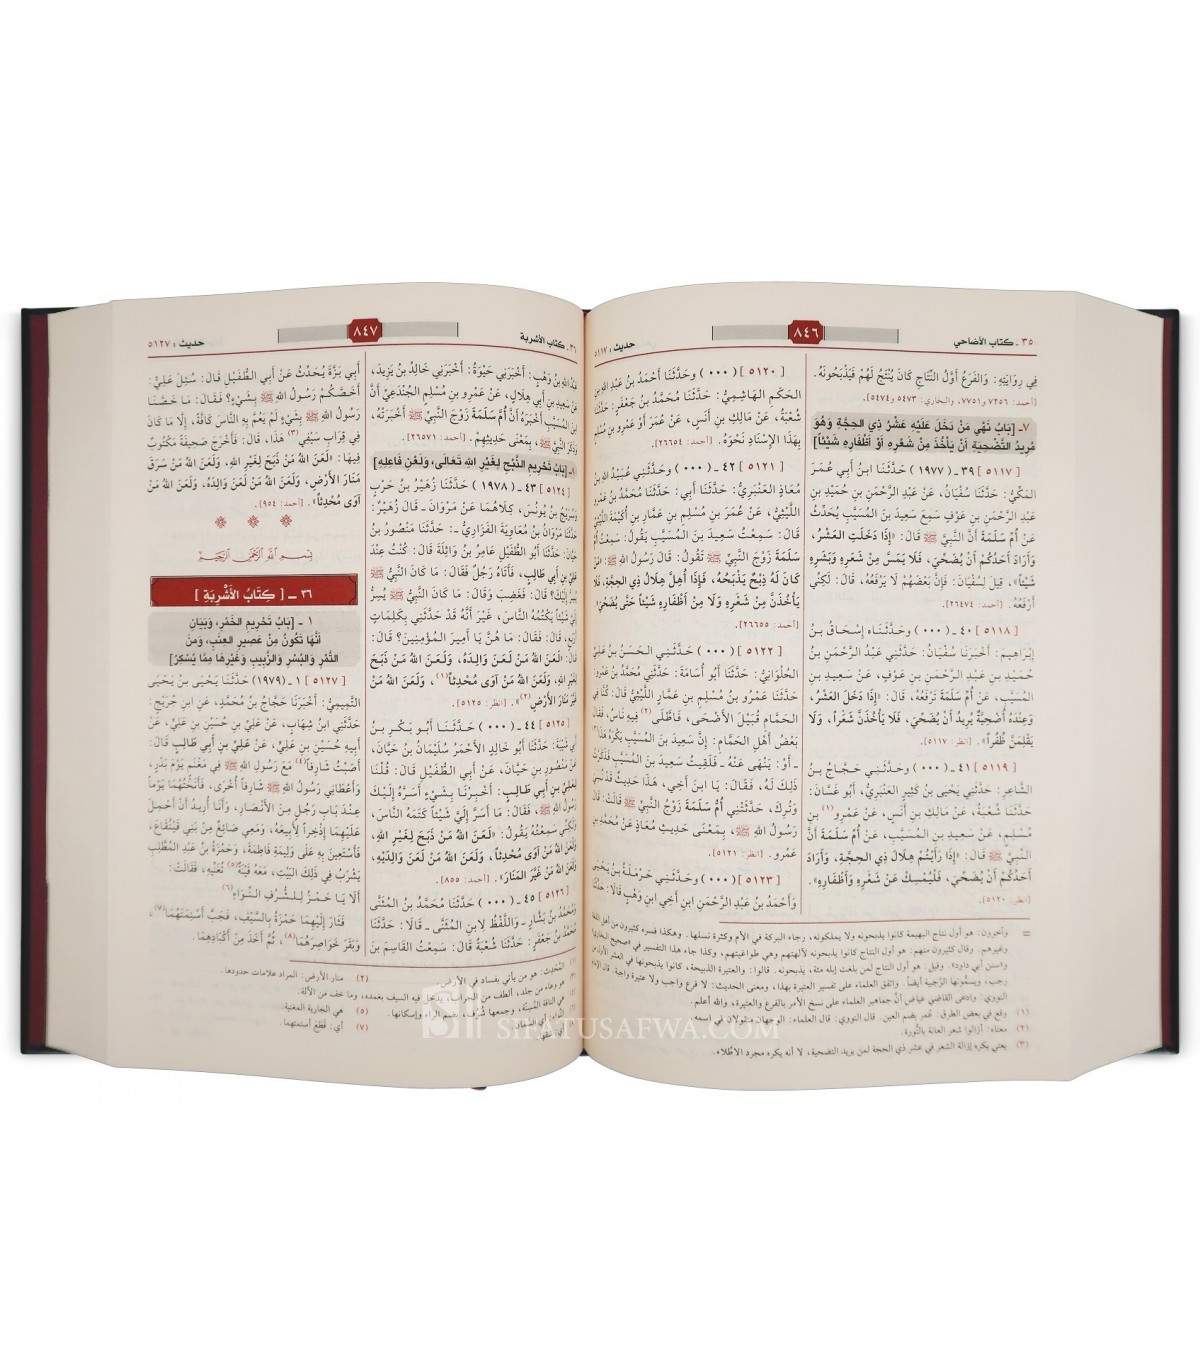 ٣٥ ـ كتاب الأضاحي
٨٤٦
حديث : ٥١١٧
فِي رِوَايَتِهِ: وَالفَرَعُ أَوَّلُ النِّتَاجِ كَانَ يُنْتَجُ لَهُمْ فَيَذْبَحُونَهُ.
[أحمد: ٧٢٥٦ و٧٧٥١، والبخاري: ٥٤٧٣ و٥٤٧٤].
٧ـ [بَابُ نَهْيِ مَنْ دَخَلَ عَلَيْهِ عَشْرُ ذِي الحِجَّةِ وَهُوَ
مُرِيدُ التَّضْحِيَةِ أَنْ يَأْخُذَ مِنْ شَعْرِهِ أَوْ أَظْفَارِهِ شَيْئاً]
[٥١١٧] ٣٩ ـ (١٩٧٧) حَدَّثَنَا ابنُ أَبِي عُمَرَ
المَكِّيُّ: حَدَّثَنَا سُفْيَانُ، عَنْ عَبْدِ الرَّحْمَنِ بنِ حُمَيْدِ بنِ
عَبْدِ الرَّحْمَنِ بنِ عَوْفٍ سَمِعَ سَعِيدَ بنَ المُسَيَّبِ يُحَدِّثُ
عَنْ أُمِّ سَلَمَةَ أَنَّ النَّبِيَّ ﷺ قَالَ: «إِذَا دَخَلَتِ العَشْرُ،
وَأَرَادَ أَحَدُكُمْ أَنْ يُضَحِّيَ، فَلَا يَمَسَّ مِنْ شَعَرِهِ وَبَشَرِهِ
شَيْئاً»، قِيلَ لِسُفْيَانَ: فَإِنَّ بَعْضَهُمْ لَا يَرْفَعُهُ، قَالَ: لَكِنِّي
أَرْفَعُهُ. [أحمد: ٢٦٤٧٤].
[٥١١٨] ٤٠ ـ (٠٠٠) وحَدَّثَنَاه إِسْحَاقُ بنُ
إِبْرَاهِيمَ: أَخْبَرَنَا سُفْيَانُ: حَدَّثَنِي عَبْدُ الرَّحْمَنِ بنُ
حُمَيْدِ بنِ عَبْدِ الرَّحْمَنِ بنِ عَوْفٍ، عَنْ سَعِيدِ بنِ
المُسَيَّبِ، عَنْ أُمِّ سَلَمَةَ تَرْفَعُهُ، قَالَ: «إِذَا دَخَلَ العَشْرُ،
وَعِنْدَهُ أُضْحِيَّةٌ يُرِيدُ أَنْ يُضَحِّيَ، فَلَا يَأْخُذَنَّ شَعْراً، وَلَا
يَقْلِمَنَّ ظُفُراً». [انظر: ٥١١٧].
[٥١١٩] ٤١ ـ (٠٠٠) وحَدَّثَنِي حَجَّاجُ بنُ
الشَّاعِرِ: حَدَّثَنِي يَحْيَى بنُ كَثِيرٍ العَنْبَرِيُّ، أَبُو غَسَّانَ:
حَدَّثَنَا شُعْبَةُ، عَنْ مَالِكِ بنِ أَنَسٍ، عَنْ عَمْرِو(١) بنِ
مُسْلِمٍ، عَنْ سَعِيدِ بنِ المُسَيَّبِ، عَنْ أُمِّ سَلَمَةَ أَنَّ
النَّبِيَّ ﷺ قَالَ: «إِذَا رَأَيْتُمْ هِلَالَ ذِي الحِجَّةِ، وَأَرَادَ
أَحَدُكُمْ أَنْ يُضَحِّيَ، فَلْيُمْسِكْ عَنْ شَعْرِهِ وَأَظْفَارِهِ».
[انظر: ٥١٢٠].
[٥١٢٠] (٠٠٠) وحَدَّثَنَا أَحْمَدُ بنُ عَبْدِ اللهِ بنِ
الحَكَمِ الهَاشِمِيُّ: حَدَّثَنَا مُحَمَّدُ بنُ جَعْفَرٍ: حَدَّثَنَا
شُعْبَةُ، عَنْ مَالِكِ بنِ أَنَسٍ، عَنْ عُمَرَ أَوْ عَمْرِو بنِ مُسْلِمٍ
بِهَذَا الإِسْنَادِ نَحْوَهُ. [أحمد: ٢٦٦٥٤].
[٥١٢١] ٤٢ ـ (٠٠٠) وحَدَّثَنِي عُبَيْدُ اللهِ بنُ
مُعَاذٍ العَنْبَرِيُّ: حَدَّثَنَا أَبِي: حَدَّثَنَا مُحَمَّدُ بنُ عَمْرٍو
اللَّيْثِيُّ، عَنْ عُمَرَ بنِ مُسْلِمِ بنِ عَمَّارِ بنِ أُكَيْمَةَ اللَّيْثِيِّ
قَالَ: سَمِعْتُ سَعِيدَ بنَ المُسَيَّبِ يَقُولُ: سَمِعْتُ أُمَّ
سَلَمَةَ زَوْجَ النَّبِيِّ ﷺ تَقُولُ: قَالَ رَسُولُ اللهِ ﷺ: «مَنْ
كَانَ لَهُ ذِبْحٌ يَذْبَحُهُ، فَإِذَا أُهِلَّ هِلَالُ ذِي الحِجَّةِ، فَلَا
يَأْخُذَنَّ مِنْ شَعْرِهِ وَلَا مِنْ أَظْفَارِهِ شَيْئاً حَتَّى يُضَحِّيَ».
[أحمد: ٢٦٦٥٥].
[٥١٢٢] (٠٠٠) حَدَّثَنِي الحَسَنُ بنُ عَلِيٍّ
الحُلْوَانِيُّ: حَدَّثَنَا أَبُو أُسَامَةَ: حَدَّثَنِي مُحَمَّدُ بنُ عَمْرٍو:
حَدَّثَنَا عَمْرُو بنُ مُسْلِمِ بنِ عَمَّارٍ اللَّيْثِيُّ قَالَ: كُنَّا فِي
الحَمَّامِ قُبَيْلَ الأَضْحَى، فَاطَّلَى(٢) فِيهِ نَاسٌ، فَقَالَ
بَعْضُ أَهْلِ الحَمَّامِ: إِنَّ سَعِيدَ بنَ المُسَيَّبِ يَكْرَهُ هَذَا(٣)
ـ أَوْ: يَنْهَى عَنْهُ ـ فَلَقِيتُ سَعِيدَ بنَ المُسَيَّبِ فَذَكَرْتُ
ذَلِكَ لَهُ، فَقَالَ: يَا ابنَ أَخِي، هَذَا حَدِيثٌ قَدْ نُسِيَ
وَتُرِكَ، حَدَّثَتْنِي أُمُّ سَلَمَةَ زَوْجُ النَّبِيِّ ﷺ قَالَتْ: قَالَ
رَسُولُ اللهِ ﷺ، بِمَعْنَى حَدِيثِ مُعَاذٍ عَنْ مُحَمَّدِ بنِ
عَمْرٍو. [انظر: ٥١٢١].
[٥١٢٣] (٠٠٠) وحَدَّثَنِي حَرْمَلَةُ بنُ يَحْيَى
وَأَحْمَدُ بنُ عَبْدِ الرَّحْمَنِ ابنِ أَخِي ابنِ وَهْبٍ قَالَا: حَدَّثَنَا
= وآخرون: هو أول نتاج البهيمة كانوا يذبحونه ولا يملكونه، رجاء البركة في الأم وكثرة نسلها. وهكذا فسره كثيرون من أهل اللغة
وغيرهم. وقال كثيرون منهم: هو أول النتاج كانوا يذبحونه لآلهتهم وهي طواغيتهم، وكذا جاء هذا التفسير في «صحيح البخاري»
و«سنن أبي داود». وقيل: هو أول النتاج لمن بلغت إبله مئة، يذبحونه. قالوا: والعتيرة الذبيحة، كانوا يذبحونها في العشر الأول من
رجب، ويسمُّونها الرَّجبية أيضاً. واتفق العلماء على تفسير العتيرة بهذا، ومعنى الحديث: لا فرع واجب ولا عتيرة واجبة. قال الإمام
النووي: وادعى القاضي عياض أنَّ جماهير العلماء على نسخ الأمر بالفرع والعتيرة، والله أعلم.
(١) وقع في بعض الطرق: عُمر بضم العين. قال النووي: قال العلماء: الوجهان منقولان في اسمه.
(٢) معناه: أزالوا شعر العانة بالنُّورة.
(٣) يعني يكره إزالة الشعر في عشر ذي الحجة لمن يريد التضحية، لا أنه يكره مجرد الاطّلاء.
٣٦ ـ كتاب الأشربة
٨٤٧
حديث : ٥١٢٧
عَبْدُ اللهِ بنُ وَهْبٍ: أَخْبَرَنِي حَيْوَةُ: أَخْبَرَنِي خَالِدُ بنُ يَزِيدَ،
عَنْ سَعِيدِ بنِ أَبِي هِلَالٍ، عَنْ عَمْرِو بنِ مُسْلِمٍ الجُنْدَعِيِّ أَنَّ
ابنَ المُسَيَّبِ أَخْبَرَهُ أَنَّ أُمَّ سَلَمَةَ زَوْجَ النَّبِيِّ ﷺ أَخْبَرَتْهُ،
وَذَكَرَ النَّبِيَّ ﷺ، بِمَعْنَى حَدِيثِهِمْ. [أحمد: ٢٦٥٧١].
٨ـ [بَابُ تَحْرِيمِ الذَّبْحِ لِغَيْرِ اللهِ تَعَالَى، وَلَعْنِ فَاعِلِهِ]
[٥١٢٤] ٤٣ ـ (١٩٧٨) حَدَّثَنَا زُهَيْرُ بنُ حَرْبٍ
وَسُرَيْجُ بنُ يُونُسَ، كِلَاهُمَا عَنْ مَرْوَانَ ـ قَالَ زُهَيْرٌ:
حَدَّثَنَا مَرْوَانُ بنُ مُعَاوِيَةَ الفَزَارِيُّ ـ: حَدَّثَنَا مَنْصُورُ بنُ
حَيَّانَ: حَدَّثَنَا أَبُو الطُّفَيْلِ عَامِرُ بنُ وَاثِلَةَ قَالَ: كُنْتُ عِنْدَ
عَلِيِّ بنِ أَبِي طَالِبٍ، فَأَتَاهُ رَجُلٌ فَقَالَ: مَا كَانَ النَّبِيُّ ﷺ
يُسِرُّ إِلَيْكَ؟ قَالَ: فَغَضِبَ وَقَالَ: مَا كَانَ النَّبِيُّ ﷺ يُسِرُّ
إِلَيَّ شَيْئاً يَكْتُمُهُ النَّاسَ، غَيْرَ أَنَّهُ قَدْ حَدَّثَنِي بِكَلِمَاتٍ
أَرْبَعٍ. قَالَ: فَقَالَ: مَا هُنَّ يَا أَمِيرَ المُؤْمِنِينَ؟ قَالَ:
قَالَ: «لَعَنَ اللهُ مَنْ لَعَنَ وَالِدَهُ، وَلَعَنَ اللهُ مَنْ ذَبَحَ
لِغَيْرِ اللهِ، وَلَعَنَ اللهُ مَنْ آوَى مُحْدِثاً(١)، وَلَعَنَ اللهُ مَنْ
غَيَّرَ مَنَارَ الأَرْضِ(٢)». [انظر: ٥١٢٥].
[٥١٢٥] ٤٤ ـ (٠٠٠) حَدَّثَنَا أَبُو بَكْرِ بنُ
أَبِي شَيْبَةَ: حَدَّثَنَا أَبُو خَالِدٍ الأَحْمَرُ سُلَيْمَانُ بنُ حَيَّانَ،
عَنْ مَنْصُورِ بنِ حَيَّانَ، عَنْ أَبِي الطُّفَيْلِ قَالَ: قُلْنَا
لِعَلِيِّ بنِ أَبِي طَالِبٍ: أَخْبِرْنَا بِشَيْءٍ أَسَرَّهُ إِلَيْكَ
رَسُولُ اللهِ ﷺ، فَقَالَ: مَا أَسَرَّ إِلَيَّ شَيْئاً كَتَمَهُ النَّاسَ،
وَلَكِنِّي سَمِعْتُهُ يَقُولُ: «لَعَنَ اللهُ مَنْ ذَبَحَ لِغَيْرِ اللهِ،
وَلَعَنَ اللهُ مَنْ آوَى مُحْدِثاً، وَلَعَنَ اللهُ مَنْ لَعَنَ وَالِدَيْهِ،
وَلَعَنَ اللهُ مَنْ غَيَّرَ المَنَارَ». [أحمد: ٨٥٥].
[٥١٢٦] ٤٥ ـ (٠٠٠) حَدَّثَنَا مُحَمَّدُ بنُ المُثَنَّى
وَمُحَمَّدُ بنُ بَشَّارٍ ـ وَاللَّفْظُ لِابنِ المُثَنَّى ـ قَالَا: حَدَّثَنَا
مُحَمَّدُ بنُ جَعْفَرٍ: حَدَّثَنَا شُعْبَةُ قَالَ: سَمِعْتُ القَاسِمَ بنَ
أَبِي بَزَّةَ يُحَدِّثُ عَنْ أَبِي الطُّفَيْلِ قَالَ: سُئِلَ عَلِيٌّ:
أَخَصَّكُمْ رَسُولُ اللهِ ﷺ بِشَيْءٍ؟ فَقَالَ: مَا خَصَّنَا
رَسُولُ اللهِ ﷺ بِشَيْءٍ لَمْ يَعُمَّ بِهِ النَّاسَ كَافَّةً، إِلَّا مَا كَانَ
فِي قِرَابِ سَيْفِي(٣) هَذَا، قَالَ: فَأَخْرَجَ صَحِيفَةً مَكْتُوبٌ
فِيهَا: «لَعَنَ اللهُ مَنْ ذَبَحَ لِغَيْرِ اللهِ، وَلَعَنَ اللهُ مَنْ سَرَقَ
مَنَارَ الأَرْضِ، وَلَعَنَ اللهُ مَنْ لَعَنَ وَالِدَهُ، وَلَعَنَ اللهُ مَنْ
آوَى مُحْدِثاً». [أحمد: ٩٥٤].
بِسْمِ اللَّهِ الرَّحْمَنِ الرَّحِيمِ
٣٦ ـ [ كِتَابُ الأَشْرِبَةِ ]
١ ـ [بَابُ تَحْرِيمِ الخَمْرِ، وَبَيَانِ
أَنَّهَا تَكُونُ مِنْ عَصِيرِ العِنَبِ، وَمِنَ
التَّمْرِ وَالبُسْرِ وَالزَّبِيبِ وَغَيْرِهَا مِمَّا يُسْكِرُ]
[٥١٢٧] ١ ـ (١٩٧٩) حَدَّثَنَا يَحْيَى بنُ يَحْيَى
التَّمِيمِيُّ: أَخْبَرَنَا حَجَّاجُ بنُ مُحَمَّدٍ، عَنِ ابنِ جُرَيْجٍ:
حَدَّثَنِي ابنُ شِهَابٍ، عَنْ عَلِيِّ بنِ حُسَيْنِ بنِ عَلِيٍّ، عَنْ
أَبِيهِ حُسَيْنِ بنِ عَلِيٍّ، عَنْ عَلِيِّ بنِ أَبِي طَالِبٍ قَالَ:
أَصَبْتُ شَارِفاً(٤) مَعَ رَسُولِ اللهِ ﷺ فِي مَغْنَمٍ يَوْمَ بَدْرٍ،
وَأَعْطَانِي رَسُولُ اللهِ ﷺ شَارِفاً أُخْرَى، فَأَنَخْتُهُمَا يَوْماً
عِنْدَ بَابِ رَجُلٍ مِنَ الأَنْصَارِ، وَأَنَا أُرِيدُ أَنْ أَحْمِلَ
عَلَيْهِمَا إِذْخِراً لِأَبِيعَهُ، وَمَعِي صَائِغٌ مِنْ بَنِي قَيْنُقَاعَ،
فَأَسْتَعِينَ بِهِ عَلَى وَلِيمَةِ فَاطِمَةَ، وَحَمْزَةُ بنُ عَبْدِ المُطَّلِبِ
يَشْرَبُ فِي ذَلِكَ البَيْتِ، مَعَهُ قَيْنَةٌ(٥) تُغَنِّيهِ، فَقَالَتْ:
أَلَا يَا حَمْزُ لِلشُّرُفِ النِّوَاءِ(٦)
فَثَارَ إِلَيْهِمَا حَمْزَةُ بِالسَّيْفِ، فَجَبَّ أَسْنِمَتَهُمَا(٧)،
وَبَقَرَ خَوَاصِرَهُمَا(٨)، ثُمَّ أَخَذَ مِنْ أَكْبَادِهِمَا.
المُحْدِث: هو من يأتي بفساد في الأرض.
(٢) منار الأرض: المراد علامات حدودها.
هو وعاء من جلد، ألطف من الجراب، يدخل فيه السيف بغمده، وما خف من الآلة.
هي الناقة المُسِنَّة، وجمعها شُرُف، بضم الراء وإسكانها.
(٥) هي الجارية المغنية.
(٧) أي: قطع أسنمتهما.
SIFATUSAFWA.COM